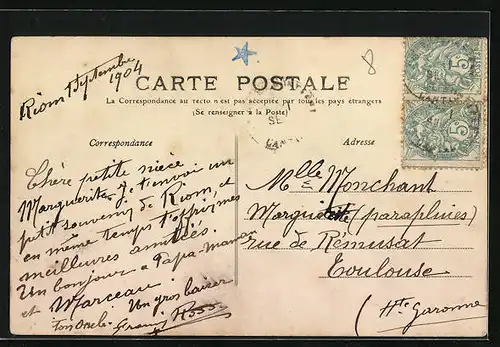 Riom 1 Septembre
1904
8
CARTE POSTALE
La Correspondance au recto n'est pas acceptée par tous les pays étrangers
(Se renseigner à la Poste)
Correspondance
Adresse
Chère petite nièce
Marguerite, Je t'envoi un
petit souvenir de Riom, et
en même temps t'exprimes
meilleures amitiés.
Un bonjour à Papa-maman
et Marceau Un gros baiser
Ton Oncle
5
5
Mlle Monchant
Marguerite (parapluies)
rue de Rémusat
Toulouse
(Hte Garonne